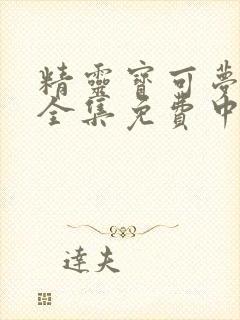 精靈寶可夢
全集免費中
達夫